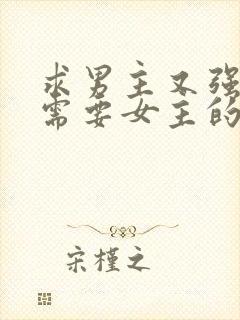 求男主又强
需要女主的
宋槿之